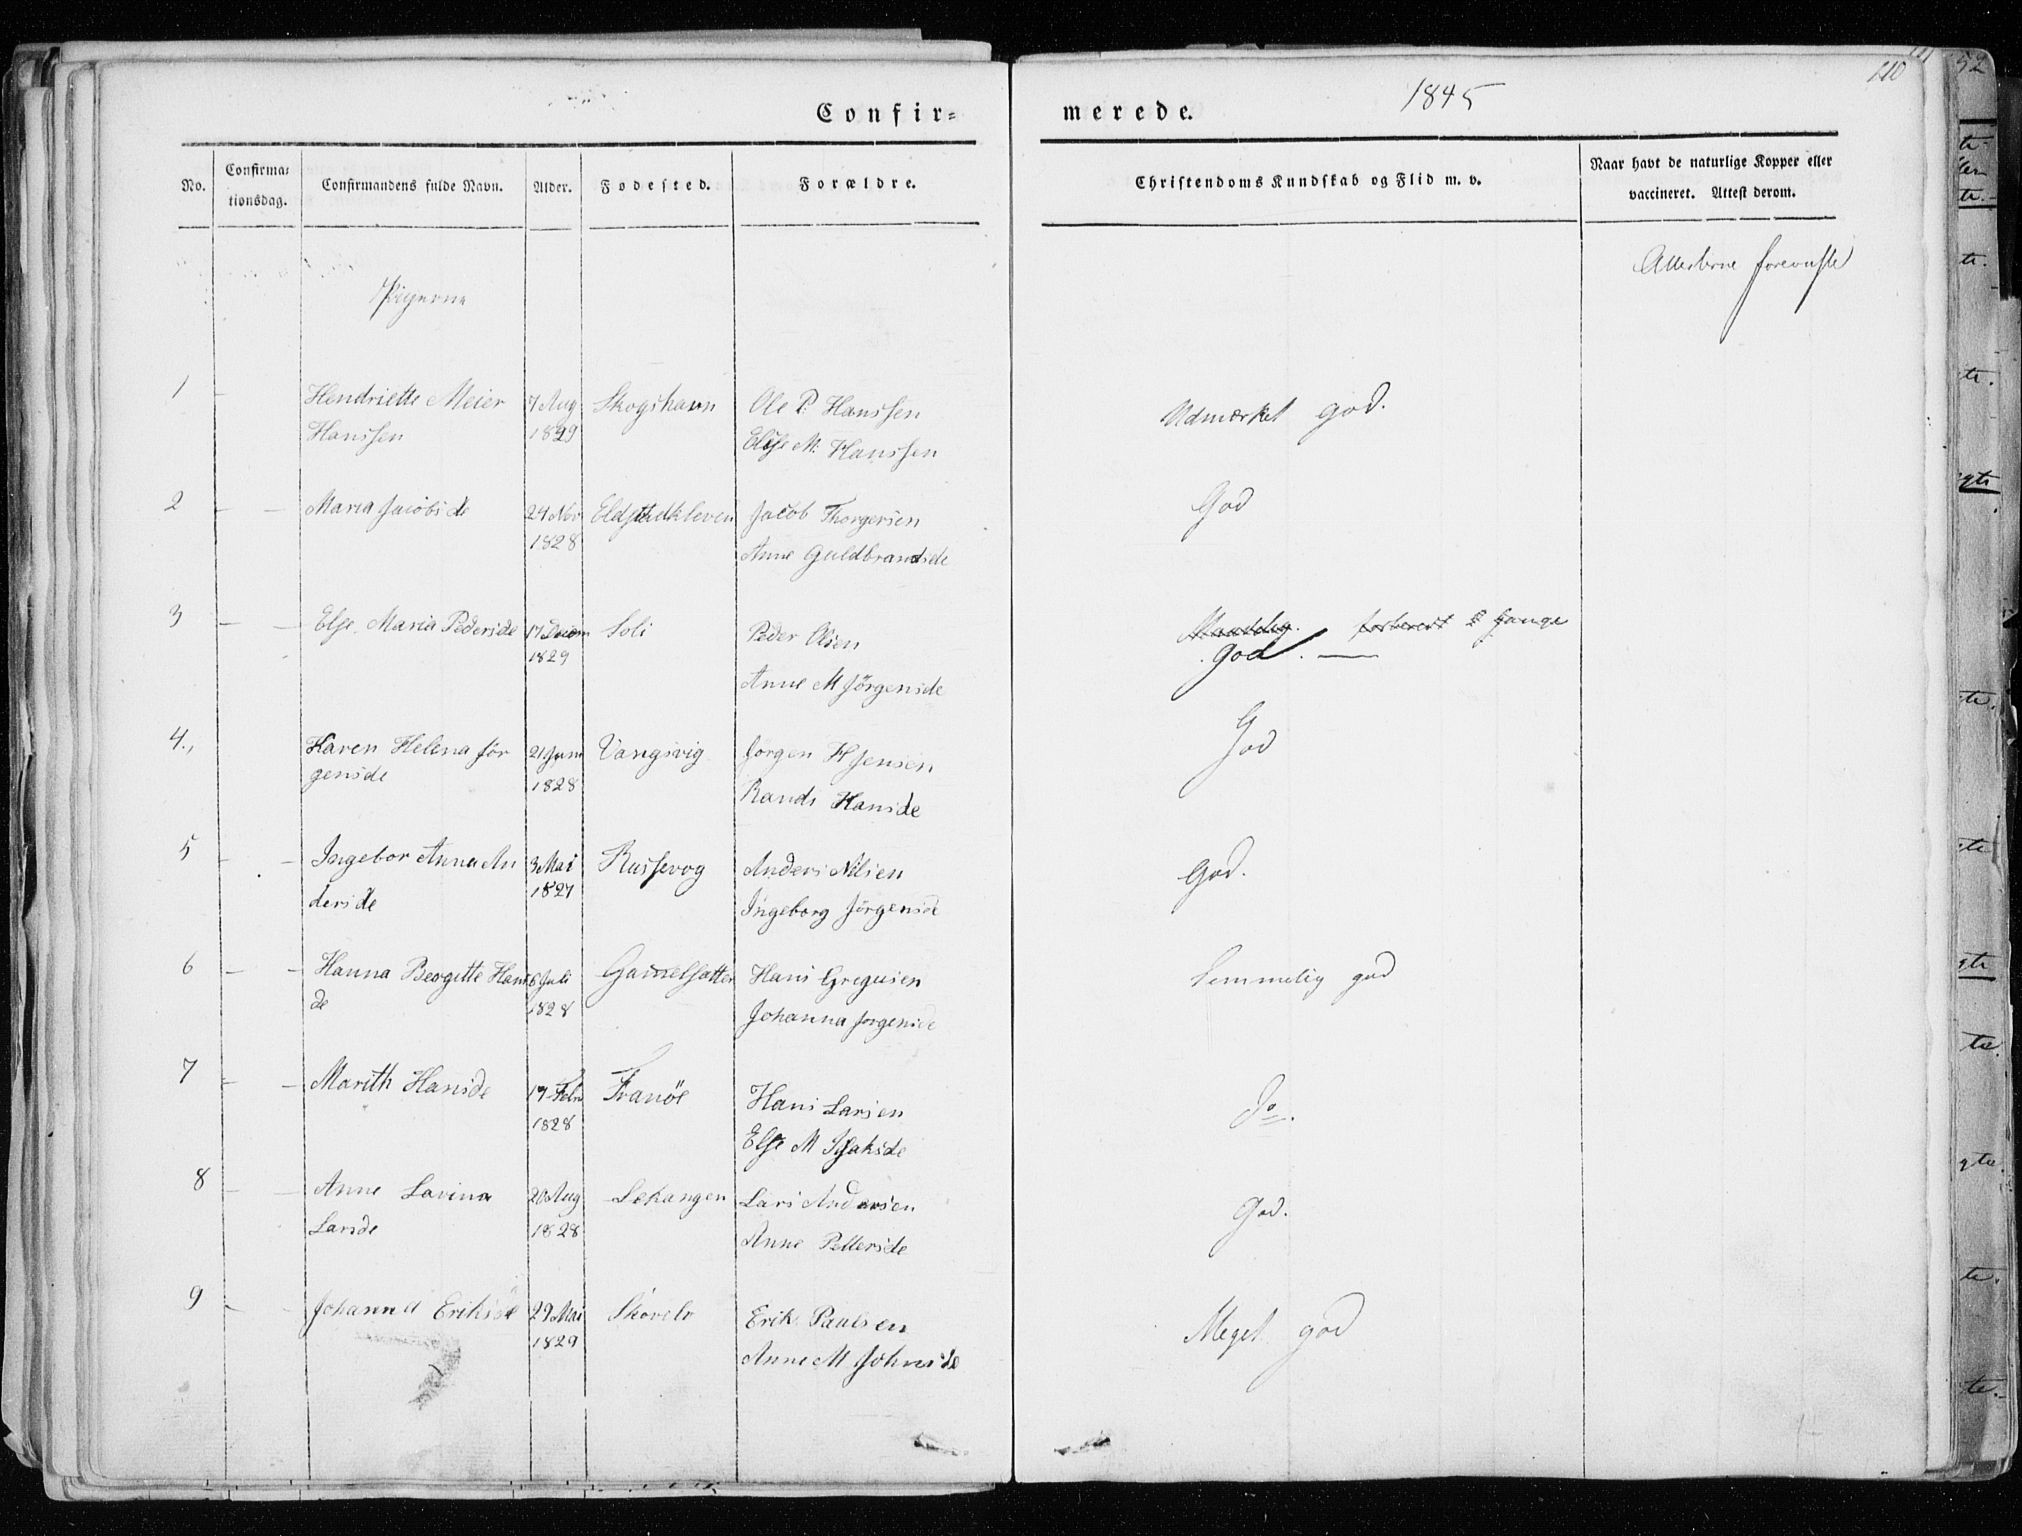 Confir=
merede.
1845
110
No.
Confirma=
tionsdag.
Confirmandens fulde Navn.
Alder.
Fødested.
Forældre.
Christendoms Kundskab og Flid m. v.
Naar havt de naturlige Kopper eller
vaccineret. Attest derom.
Pigerne
Attesterne foreviiste
1 -
Hendriette Meier
Hanssen
7 Aug
1829
Skogshavn
Ole P. Hanssen
Else M. Hanssen
Udmærket god.
2 - -
Maria Jacobsde
24 Nov
1828
Jacob Thorgersen
Anne Guldbrandsde
God
3 - -
Else Maria Pedersde
17
1829
Soli
Peder Olsen
Anne M Jörgensde
Gange
God. -
4.,
Karen Helena Jör
gensde
21 Juni
1828
Vangsvig
Jörgen H Jensen
Randi Hansde
God
5 - -
Ingebor Anna An
dersde
3 Mai
1827
Russevog
Anders Nilsen
Ingeborg Jörgensde
God.
6 - -
Hanna Bergitte Hans
de
6 Juli
1828
Hans Gregusen
Johanna Jörgensde
Temmelig god
7 - -
Marith Hansde
17 Febr
1828
Tranöe
Hans Larsen
Else M Isaksde
do.
8 - -
Anne Lavina
Larsde
20 Aug
1828
Lekangen
Lars Andersen
Anne Pettersde
God.
9 - -
Johanna Eriksde
29 Mai
1829
Skovelv
Erik Paulsen
Anne M Johnsde
Meget god